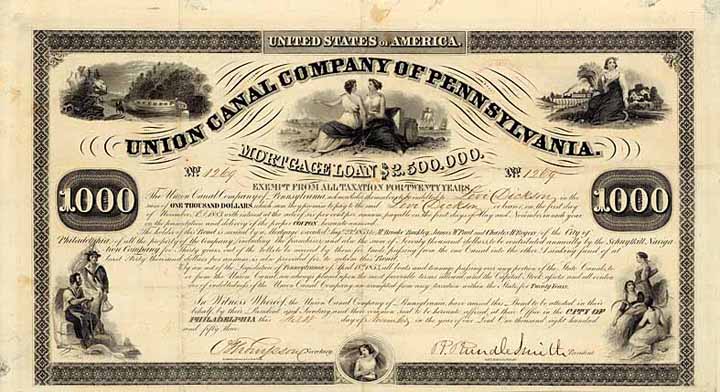 UNITED STATES OF AMERICA.
UNION CANAL COMPANY OF PENNSYLVANIA.
MORTGAGE LOAN $2.500.000.
No. 1269 No. 1269
EXEMPT FROM ALL TAXATION FOR TWENTY YEARS.
1000 1000
The Union Canal Company of Pennsylvania, acknowledge themselves indebted to Levi Dickson, in the
sum of ONE THOUSAND DOLLARS. which they promise to pay to the said Levi Dickson or bearer, on the first day
of November, A.D. 1883 with interest at the rate of six per cent per annum payable on the first days of May and November in each year
on the presentation and delivery of the proper COUPON hereto annexed.
The holder of this Bond is secured by a Mortgage executed
James M. Paul and Charles H. Rogers, of the City of
Philadelphia, of all the property of the Company, including the franchises, and also the sum of Seventy thousand dollars, to be contributed annually by the Schuylkill Naviga-
tion Company, for Thirty years, out of the tolls to be received by them on
passing from the one Canal into the other. A sinking fund of at
least Forty thousand dollars per annum, is also provided for, to retain this Bond.
By an act of the Legislature of Pennsylvania, of April 18, 1853, all boats and tonnage passing over any portion of the State Canals, to
or from the Union Canal, are always
and the Capital Stock
and all eviden-
ces of indebtedness of the Union Canal Company are exempted from every taxation within the State for Twenty Years.
In Witness Whereof, the Union Canal Company of Pennsylvania, have caused this Bond to be attested in their
behalf, by their President and Secretary, and their common seal to be hereunto affixed, at their Office in the CITY OF
PHILADELPHIA this First day of November, in the year of our Lord One thousand eight hundred
and fifty three.
O Thompson Secretary. R. Rundle Smith President